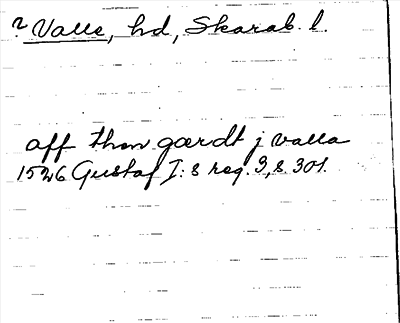 ? Valle, hd, Skarab. l.
aff then gærdt j valla
1526 Gustaf I:s reg. 3, s. 301.